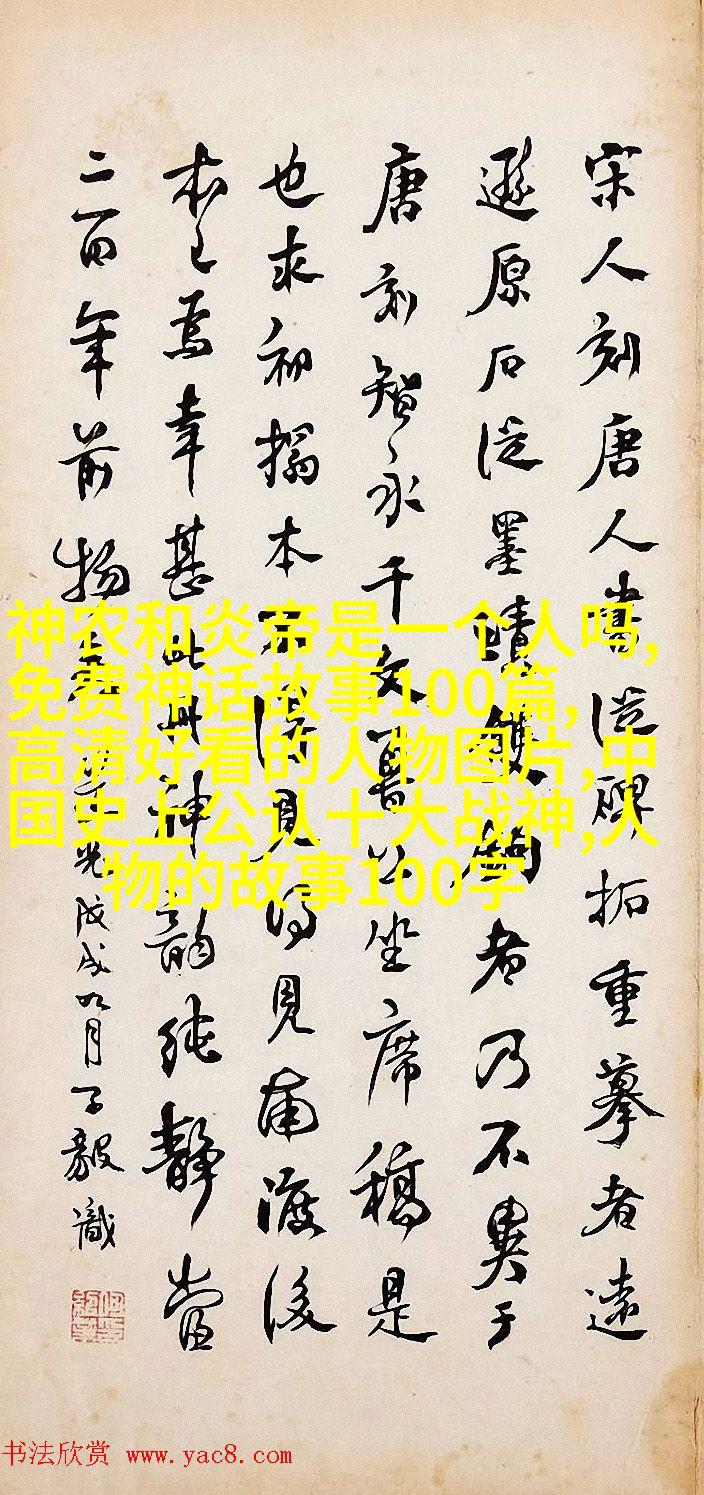 宋人刻唐人書從碑拓重摹者遠
遜原石從墨蹟雙鉤者乃不異于
唐刻智永千文魯公坐席稿是
也求初搨本不得見得見南渡後
本已為幸甚此冊神韵純靜當
二百年前物矣道光戊戌九月子毅識
神农和炎帝是一个人吗,
免费神话故事100篇,
高清好看的人物图片,中
国史上公认十大战神,人
物的故事100字
书法欣赏 www.yac8.com